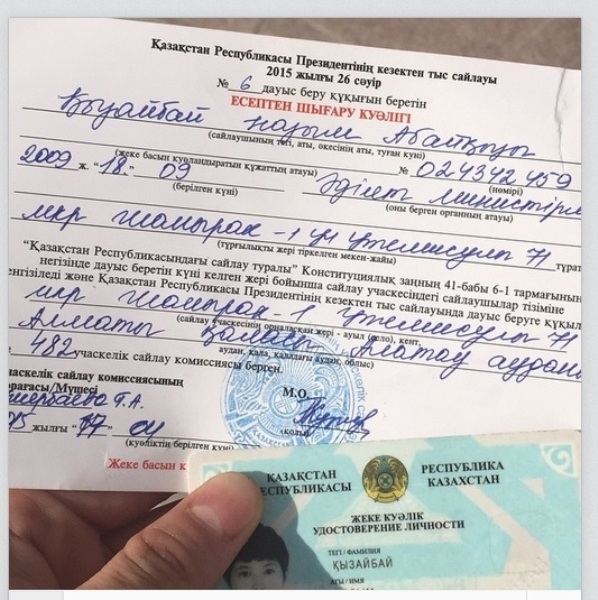 Қазақстан Республикасы Президентінің кезектен тыс сайлауы
2015 жылғы 26 сәуір
№ 6 дауыс беру құқығын беретін
ЕСЕПТЕН ШЫҒАРУ КУӘЛІГІ
Қызайбай Назым Абайқызы
(сайлаушының тегі, аты, әкесінің аты, туған күні)
№ 024342459
(жеке басын куәландыратын құжаттың атауы) (нөмірі)
2009 ж. "18" 09 Әділет министірлі
(берілген күні) (оны берген органның атауы)
мкр Шаңырақ-1 ул Утемисулы 71
(тұрғылықты жері тіркелген мекен-жайы) тұрат
"Қазақстан Республикасындағы сайлау туралы" Конституциялық заңның 41-бабы 6-1 тармағының
негізінде дауыс беретін күні келген жері бойынша сайлау учаскесіндегі сайлаушылар тізіміне
енгізіледі және Қазақстан Республикасы Президентінің кезектен тыс сайлауында дауыс беруге құқылы
мкр Шаңырақ-1 Утемисулы 71
(сайлау учаскесінің орналасқан жері - ауыл (село), кент,
Алматы қаласы Алатау ауданы
аудан, қала, қаладағы аудан, облыс)
482 учаскелік сайлау комиссиясы берген.
часкелік сайлау комиссиясының
орағасы/Мүшесі М.О.
Г.А.
(қолы)
15 жылғы "17" 04
(куәліктің берілген күні)
Жеке басын к
ҚАЗАҚСТАН РЕСПУБЛИКА
РЕСПУБЛИКАСЫ КАЗАХСТАН
ЖЕКЕ КУӘЛІК
УДОСТОВЕРЕНИЕ ЛИЧНОСТИ
ТЕГІ / ФАМИЛИЯ
ҚЫЗАЙБАЙ
АТЫ / ИМЯ